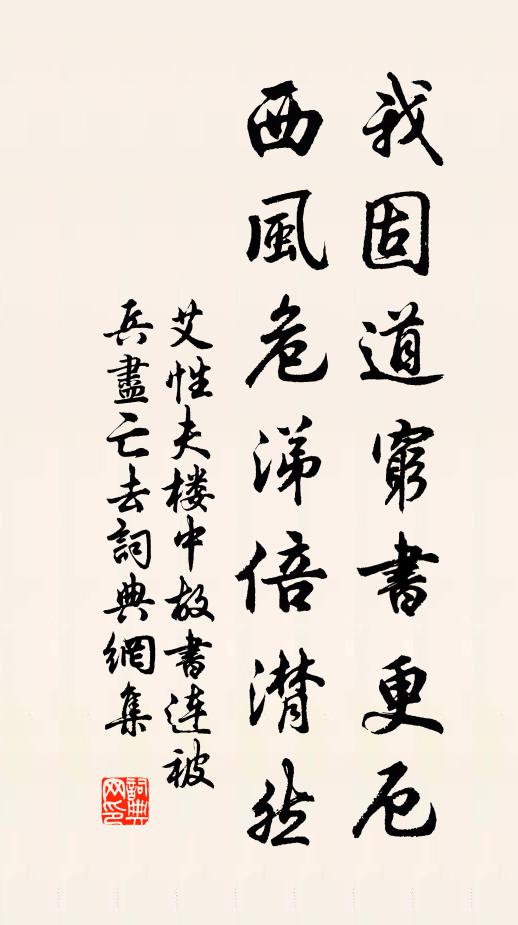 我固道窮書更厄
西風危涕倍潸然
艾性夫楼中故書连被
兵盡亡去詞典網集
詞典网印